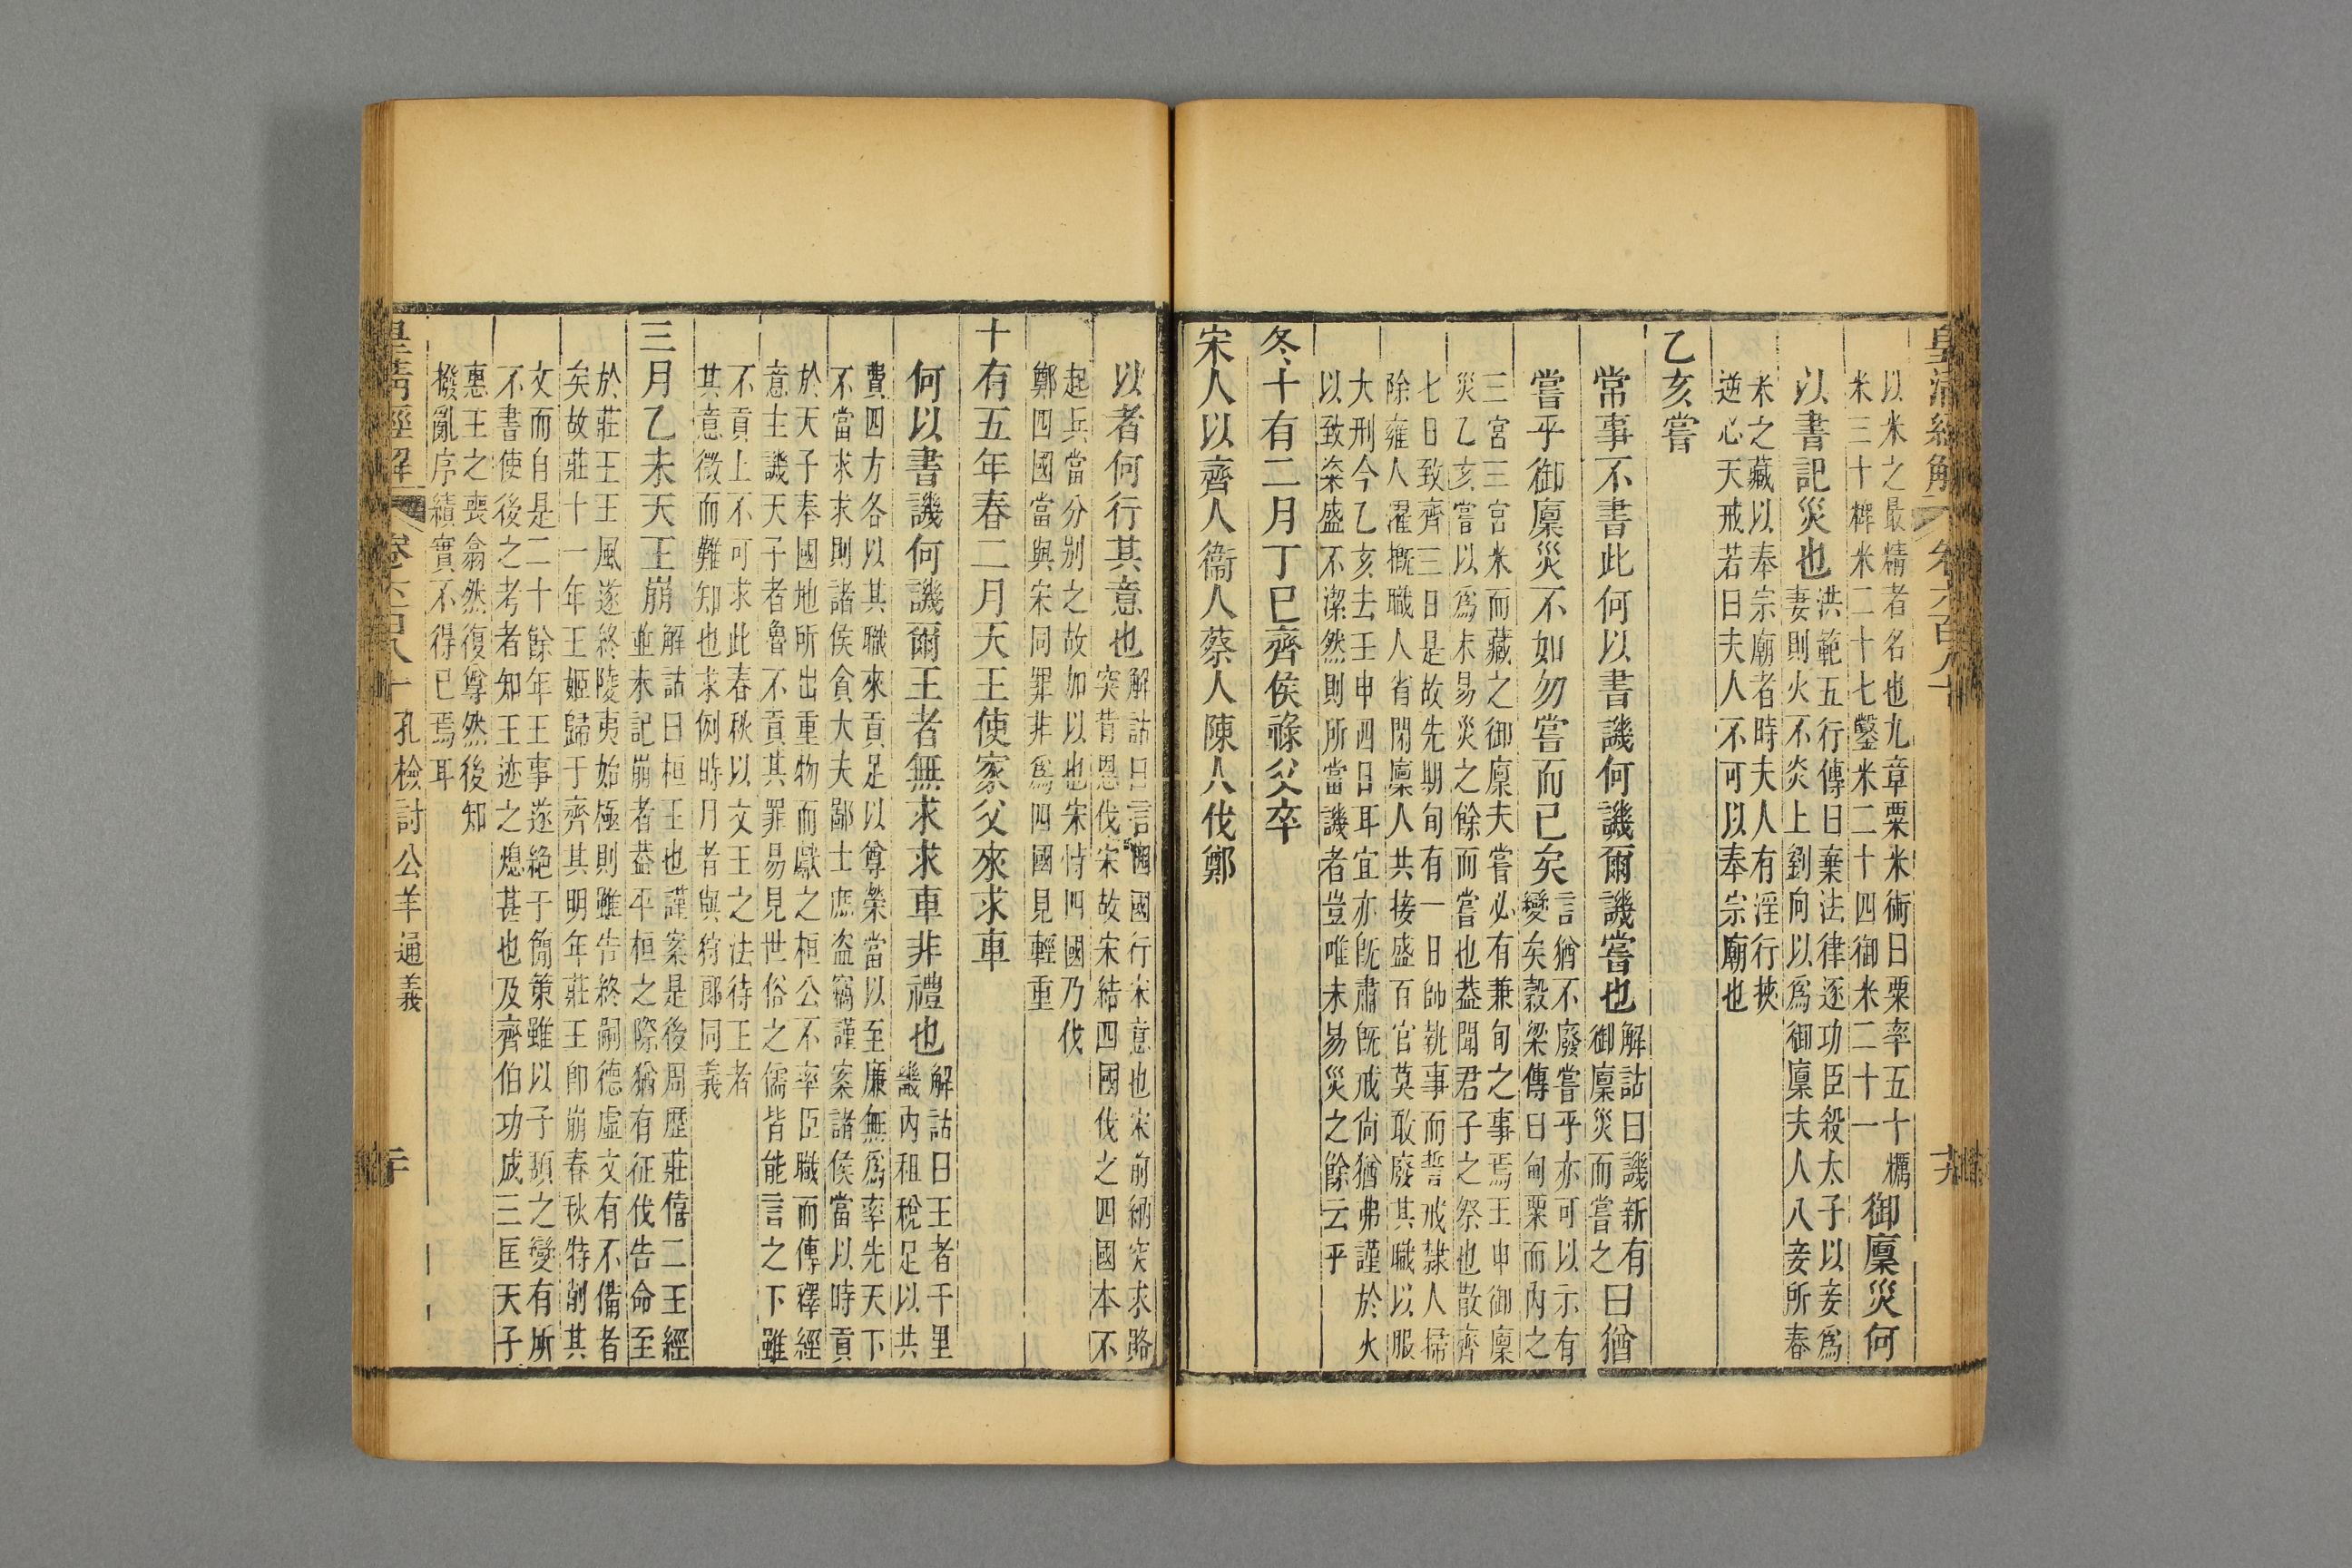 皇清經解 卷六百八十
以米之最精者名也九章粟米術曰粟率五十糲
米三十粺米二十七鑿米二十四御米二十一 御廩災何
以書記災也 洪範五行傳曰棄法律逐功臣殺太子以妾爲
妻則火不炎上劉向以爲御廩夫人八妾所舂
米之藏以奉宗廟者時夫人有淫行挾
逆心天戒若曰夫人不可以奉宗廟也
乙亥嘗
常事不書此何以書譏何譏爾譏嘗也 解詁曰譏新有
御廩災而嘗之 曰猶
嘗乎御廩災不如勿嘗而已矣 言猶不廢嘗乎亦可以示有
變矣穀梁傳曰甸粟而內之
三宮三宮米而藏之御廩夫嘗必有兼旬之事焉王申御廩
災乙亥嘗以爲未易災之餘而嘗也葢聞君子之祭也散齊
七日致齊三日是故先期旬有一日帥執事而誓戒隸人掃
除雍人濯摡職人省閑廩人共接盛百官莫敢廢其職以服
大刑今乙亥去壬申四日耳宜亦旣肅旣戒尙猶弗謹於火
以致粢盛不潔然則所當譏者豈唯未易災之餘云乎
冬十有二月丁巳齊侯祿父卒
宋人以齊人衞人蔡人陳人伐鄭
以者何行其意也 解詁曰言四國行宋意也宋前納突求賂
突背恩伐宋故宋結四國伐之四國本不
起兵當分别之故加以也宋恃四國乃伐
鄭四國當與宋同罪非爲四國見輕重
十有五年春二月天王使家父來求車
何以書譏何譏爾王者無求求車非禮也 解詁曰王者千里
畿內租稅足以共
費四方各以其職來貢足以尊榮當以至廉無爲率先天下
不當求求則諸侯貪大夫鄙士庶盜竊謹案諸侯當以時貢
於天子奉國地所出重物而獻之桓公不率臣職而傳釋經
意主譏天子者魯不貢其罪易見世俗之儒皆能言之下雖
不貢上不可求此春秋以文王之法待王者
其意微而難知也求例時月者與狩郎同義
三月乙未天王崩 解詁曰桓王也謹案是後周歷莊僖二王經
並未記崩者葢平桓之際猶有征伐告命至
於莊王王風遂終陵夷始極則雖告終嗣德虛文有不備者
矣故莊十一年王姬歸于齊其明年莊王卽崩春秋特削其
文而自是二十餘年王事遂絶于簡策雖以子頹之變有所
不書使後之考者知王迹之熄甚也及齊伯功成三匡天子
惠王之喪翕然復尊然後知
撥亂序績實不得已焉耳
皇淸經解 卷六百八十 孔檢討公羊通義